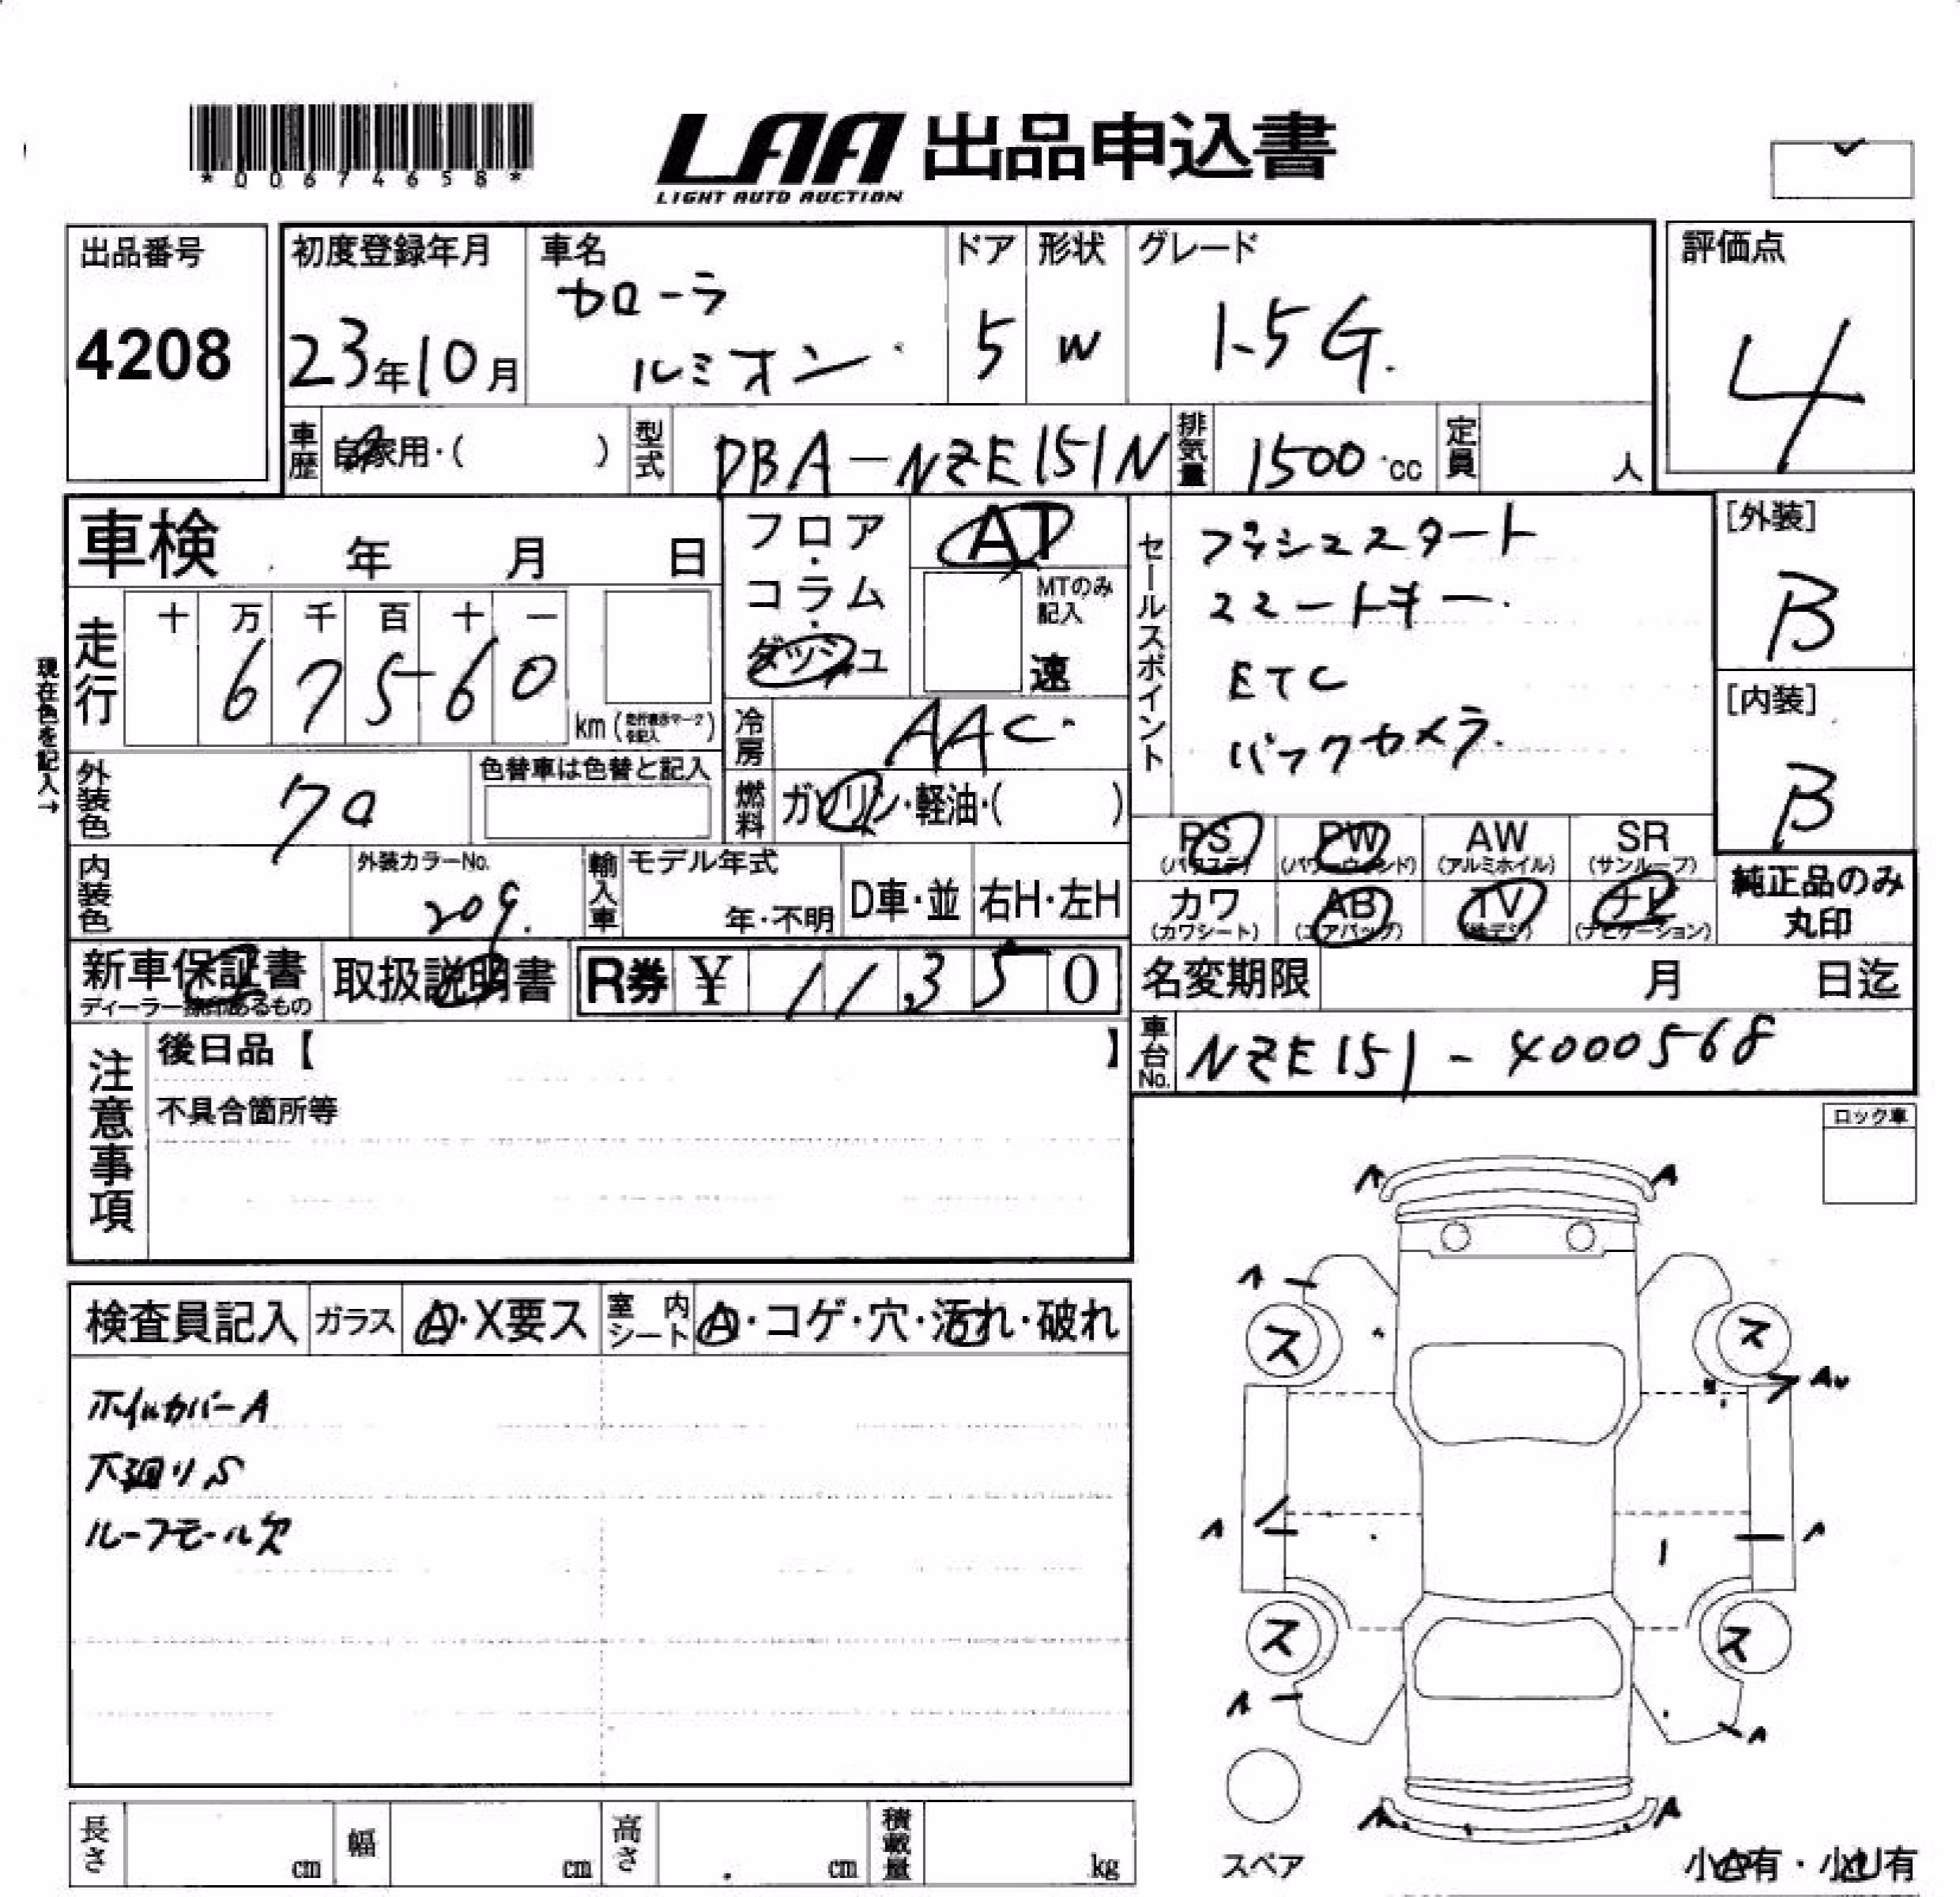 *00674658*
LAA 出品申込書
LIGHT AUTO AUCTION
出品番号
4208
初度登録年月
23年10月
車名
カローラ
ルミオン
ドア
5
形状
W
グレード
1.5G.
評価点
4
車歴
自家用・( )
型式
DBA-NZE151N
排気量
1500cc
定員
人
車検 年 月 日
フロア・コラム・ダッシュ
AT
MTのみ記入
速
セールスポイント
プッシュスタート
スマートキー
ETC
バックカメラ
[外装]
B
[内装]
B
現在色を記入→
走行
十 万 千 百 十 一
6 7 5 6 0
km(走行表示マークを記入)
冷房
AAC
外装色
クロ
色替車は色替と記入
燃料
ガソリン・軽油・( )
PS
(パワステ)
PW
(パワーウィンド)
AW
(アルミホイル)
SR
(サンルーフ)
カワ
(カワシート)
AB
(エアバッグ)
TV
(地デジ)
ナビ
(ナビゲーション)
純正品のみ
丸印
内装色
外装カラーNo.
209.
輸入車
モデル年式
年・不明
D車・並
右H・左H
新車保証書
ディーラー捺印あるもの
取扱説明書
R券 ¥ 11,350
名変期限 月 日迄
車台No.
NZE151-4000568
注意事項
後日品【 】
不具合箇所等
ロック車
検査員記入
ガラス
A・X要ス
室内シート
A・コゲ・穴・汚れ・破れ
ホイルカバーA
下廻りS
ルーフモール欠
A A
A
ス ス
AU
A A
ス ス
A A
A A
スペア
小A有・小U有
長さ cm
幅 cm
高さ cm
積載量 kg